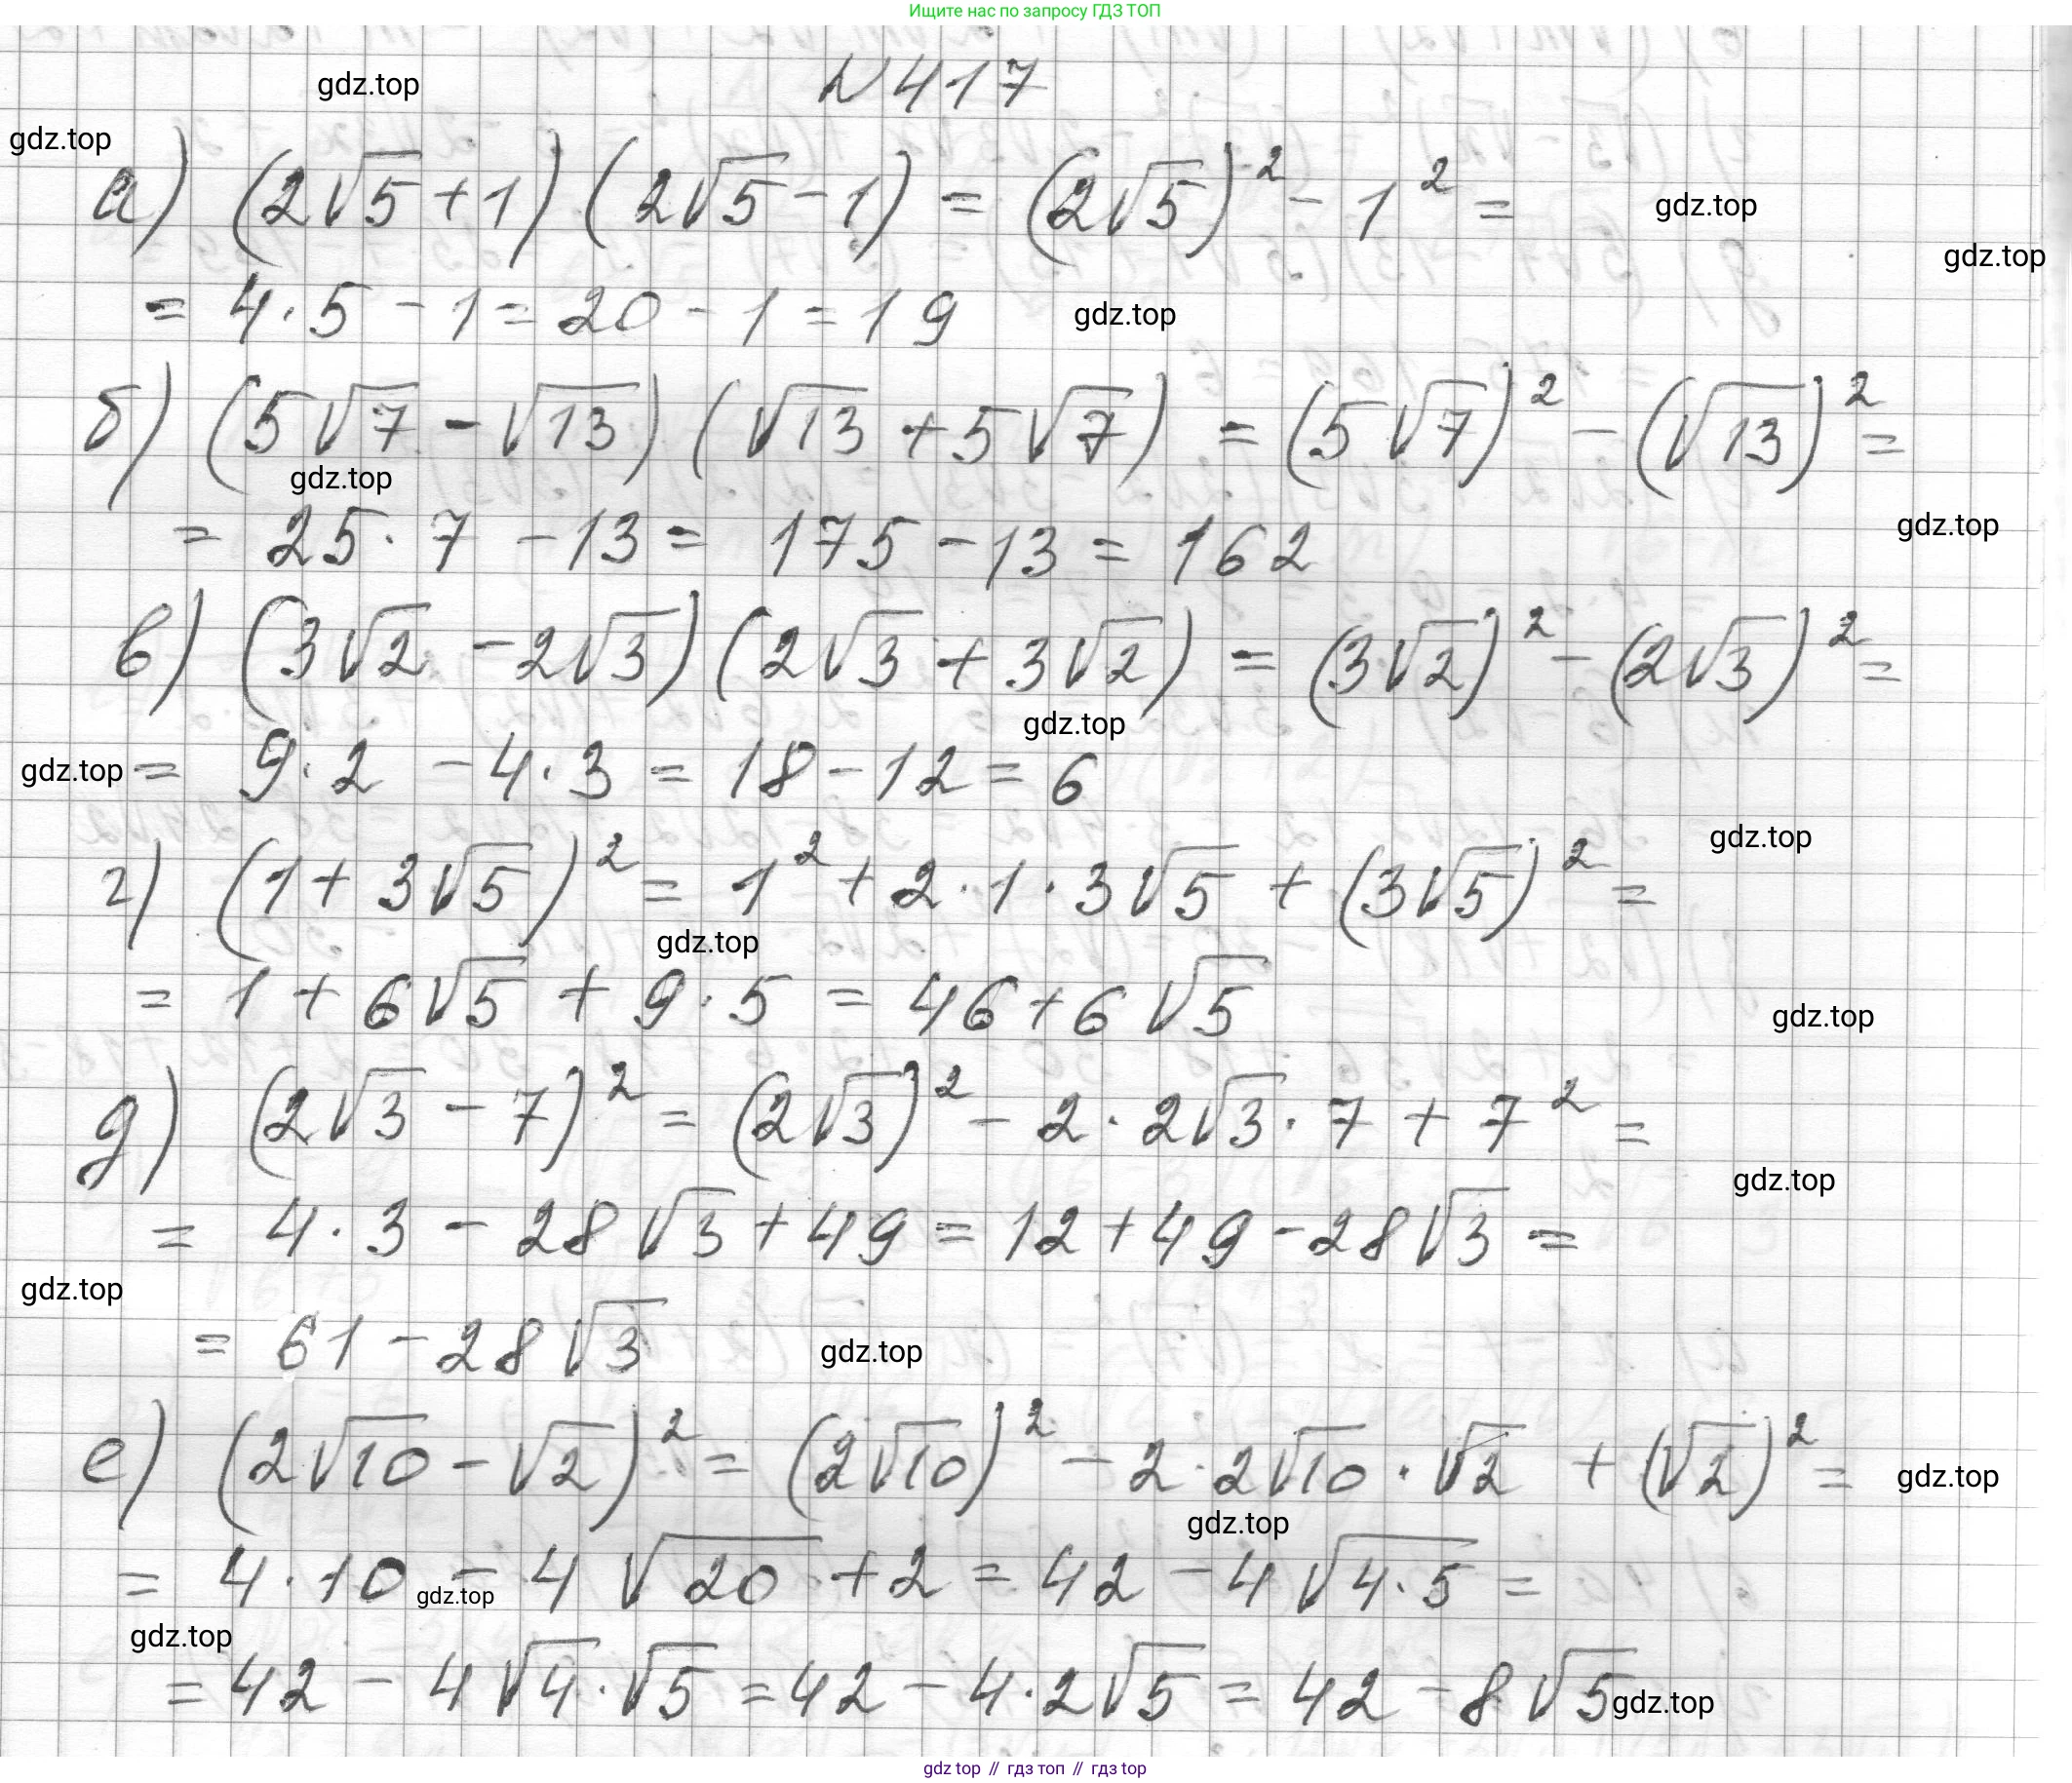 Ищите нас по запросу ГДЗ ТОП
N 417
gdz.top
gdz.top
а) (2√5 + 1) (2√5 - 1) = (2√5)² - 1² =
gdz.top
gdz.top
= 4 · 5 - 1 = 20 - 1 = 19
gdz.top
б) (5√7 - √13) (√13 + 5√7) = (5√7)² - (√13)² =
gdz.top
= 25 · 7 - 13 = 175 - 13 = 162
gdz.top
в) (3√2 - 2√3) (2√3 + 3√2) = (3√2)² - (2√3)² =
gdz.top
gdz.top
= 9 · 2 - 4 · 3 = 18 - 12 = 6
gdz.top
г) (1 + 3√5)² = 1² + 2 · 1 · 3√5 + (3√5)² =
gdz.top
= 1 + 6√5 + 9 · 5 = 46 + 6√5
gdz.top
д) (2√3 - 7)² = (2√3)² - 2 · 2√3 · 7 + 7² =
gdz.top
= 4 · 3 - 28√3 + 49 = 12 + 49 - 28√3 =
gdz.top
= 61 - 28√3
gdz.top
е) (2√10 - √2)² = (2√10)² - 2 · 2√10 · √2 + (√2)² =
gdz.top
gdz.top
= 4 · 10 - 4√20 + 2 = 42 - 4√4·5 =
gdz.top
gdz.top
= 42 - 4√4 · √5 = 42 - 4 · 2√5 = 42 - 8√5
gdz.top
gdz top // гдз топ // гдз top